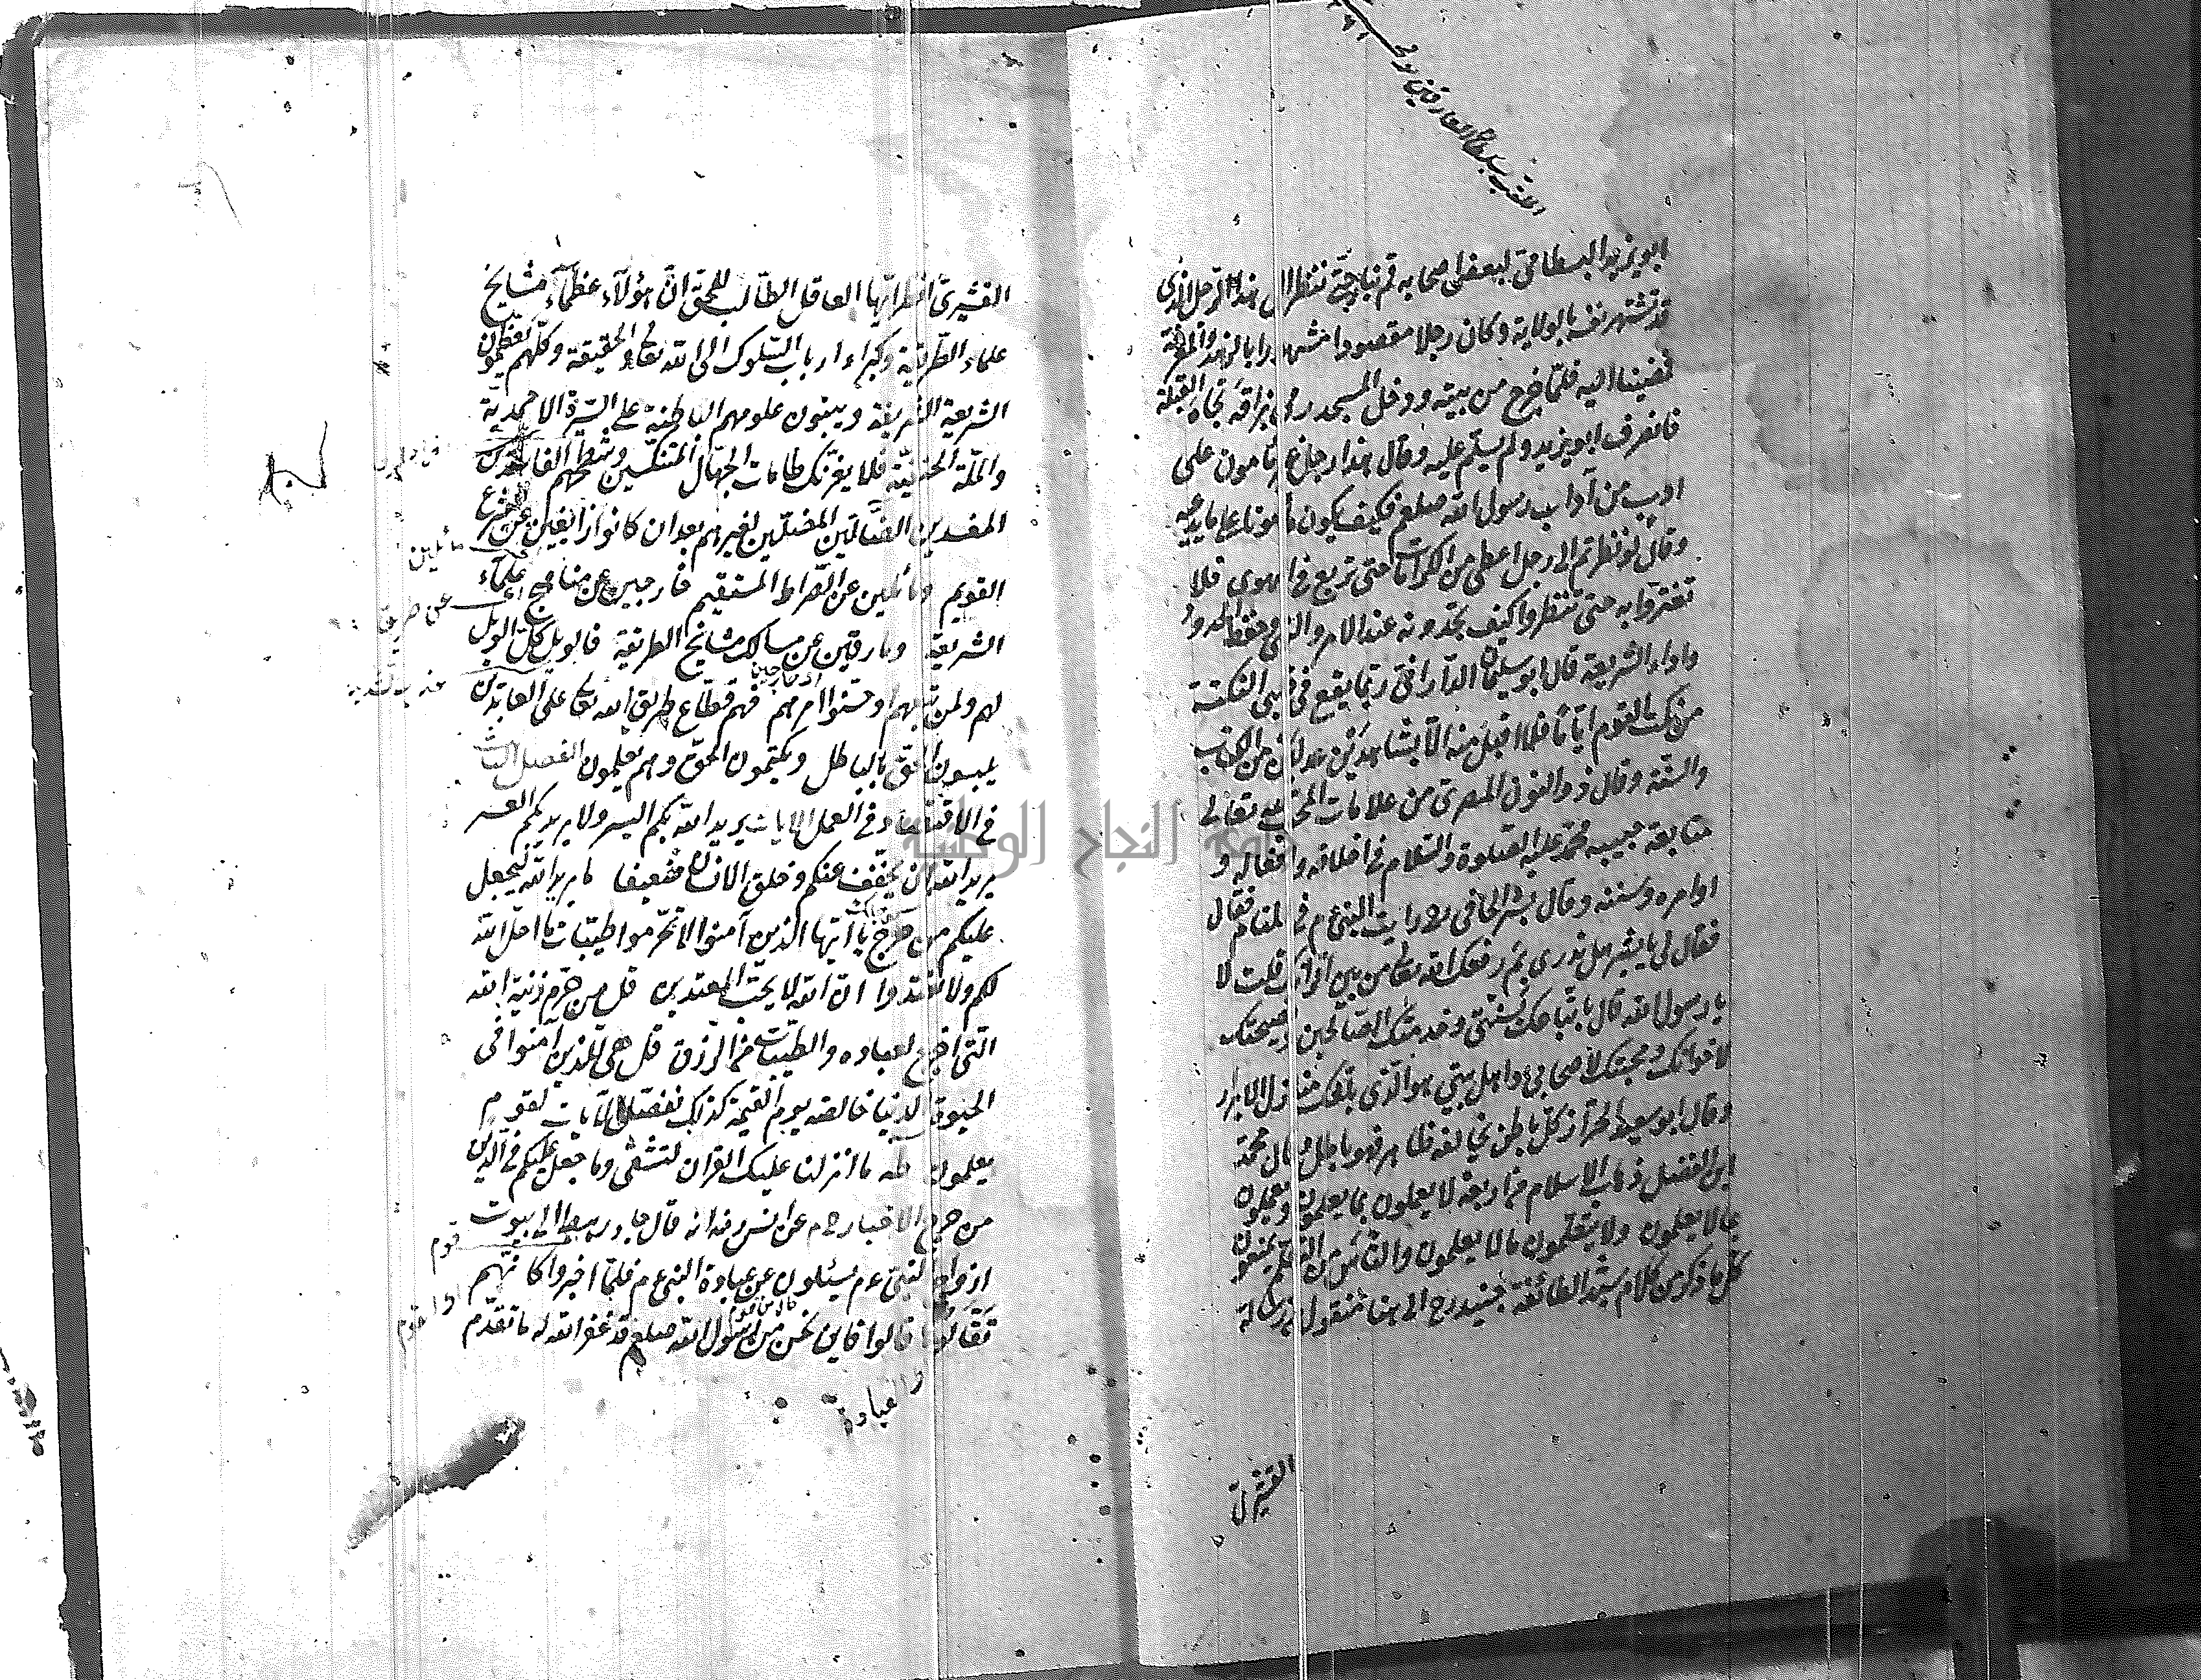 الملقب بسلطان العارفين
ابو يزيد البسطامى لبعض اصحابه قم بنا حتى ننظر الى هذا الرجل الذى
قد شهر نفسه بالولاية وكان رجلا مقصودا مشهورا بالزهد والمعرفة
فمضينا اليه فلما خرج من بيته ودخل المسجد رمى بزاقه تجاه القبلة
فانصرف ابو يزيد ولم يسلم عليه وقال هذا رجل غير مأمون على
ادب من آداب رسول الله صلعم فكيف يكون مأمونا على ما يدعيه
وقال لو نظرتم الى رجل اعطى من الكرامات حتى تربع فى الهوى فلا
تغتروا به حتى تنظروا كيف تجدونه عند الامر والنهى وحفظ الحدود
واداء الشريعة قال ابو سليمان الدارانى ربما يقع فى قلبى النكتة
من نكت القوم اياما فلا اقبل منه الا بشاهدين عدلين من الكتاب
والسنة وقال ذو النون المصرى من علامات المحب لله تعالى
متابعة حبيبه محمد عليه الصلوة والسلام فى اخلاقه وافعاله و
اوامره وسننه وقال بشر الحافى رح رايت النبى عم فى المنام فقال
فقال لى يا بشر هل تدرى بم رفعك الله تعالى من بين اقرانك قلت لا
يا رسول الله قال باتباعك لسنتى وخدمتك للصالحين ونصيحتك
لاخوانك ومحبتك لاصحابى واهل بيتى هو الذى بلغك منازل الابرار
وقال ابو سعيد الخراز كل باطن يخالفه ظاهر فهو باطل وقال محمد
ابن الفضل ذهاب الاسلام من اربعة لا يعملون بما يعلمون ويعملون
بما لا يعلمون ولا يتعلمون ما لا يعلمون والناس من التعلم يمنعون
كل ما ذكر من كلام سيد الطائفة جنيد رح الى هنا منقول من رسالة
القشيرى
القشيرى انظر ايها العاقل الطالب للحق ان هؤلاء عظماء مشايخ
علماء الطريقة وكبراء ارباب السلوك الى الله تعالى والحقيقة وكلهم يعظمون
الشريعة الشريفة ويبنون علومهم الباطنية على السيرة الاحمدية
والملة الحنيفية فلا يغرنك طامات الجهال المتنسكين وشطحهم الفاسدين
المفسدين الضالين المضلين لغيرهم بعد ان كانوا زائغين عن الشرع
مائلين
القويم ومائلين عن الصراط المستقيم خارجين عن مناهج علماء
الشريعة ومارقين عن مسالك مشايخ الطريقة فالويل كل الويل
لهم ولمن تبعهم او حسنوا امرهم فهم قطاع طريق الله تعالى على العابدين
يلبسون الحق بالباطل ويكتمون الحق وهم يعلمون الفصل الثالث
فى الاقتصاد فى العمل الايات يريد الله بكم اليسر ولا يريد بكم العسر
يريد الله ان يخفف عنكم وخلق الانسان ضعيفا ما يريد الله ليجعل
عليكم من حرج يا ايها الذين آمنوا لا تحرموا طيبات ما احل الله
لكم ولا تعتدوا ان الله لا يحب المعتدين قل من حرم زينة الله
التى اخرج لعباده والطيبات من الرزق قل هى للذين آمنوا فى
الحيوة الدنيا خالصة يوم القيمة كذلك نفصل الايات لقوم
يعلمون طه ما انزلنا عليك القرآن لتشقى وما جعل عليكم فى الدين
من حرج الاخبار خ م عن انس رضه انه قال جاء رهط الى بيوت
قوم
ازواج النبى عم يسئلون عن عبادة النبى عم فلما اخبروا كانهم
تقالوها قالوا فاين نحن من رسول الله صلعم قد غفر الله له ما تقدم
والعبادة
جامعة النجاح الوطنية